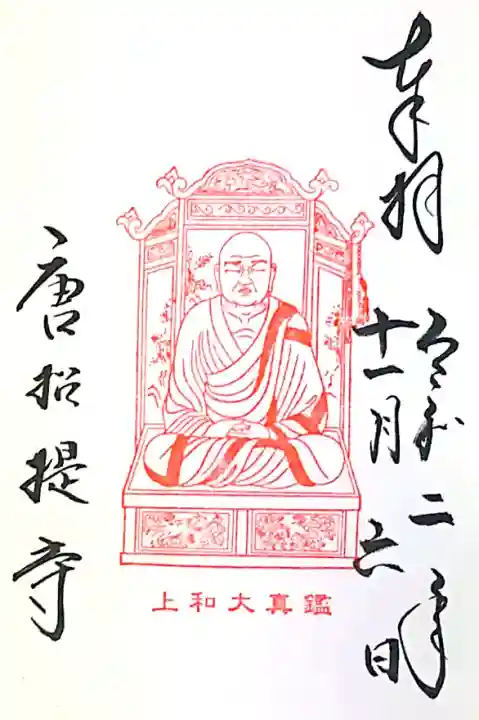 奉拝
令和二年
十一月六日
唐招提寺
上和大真鑑